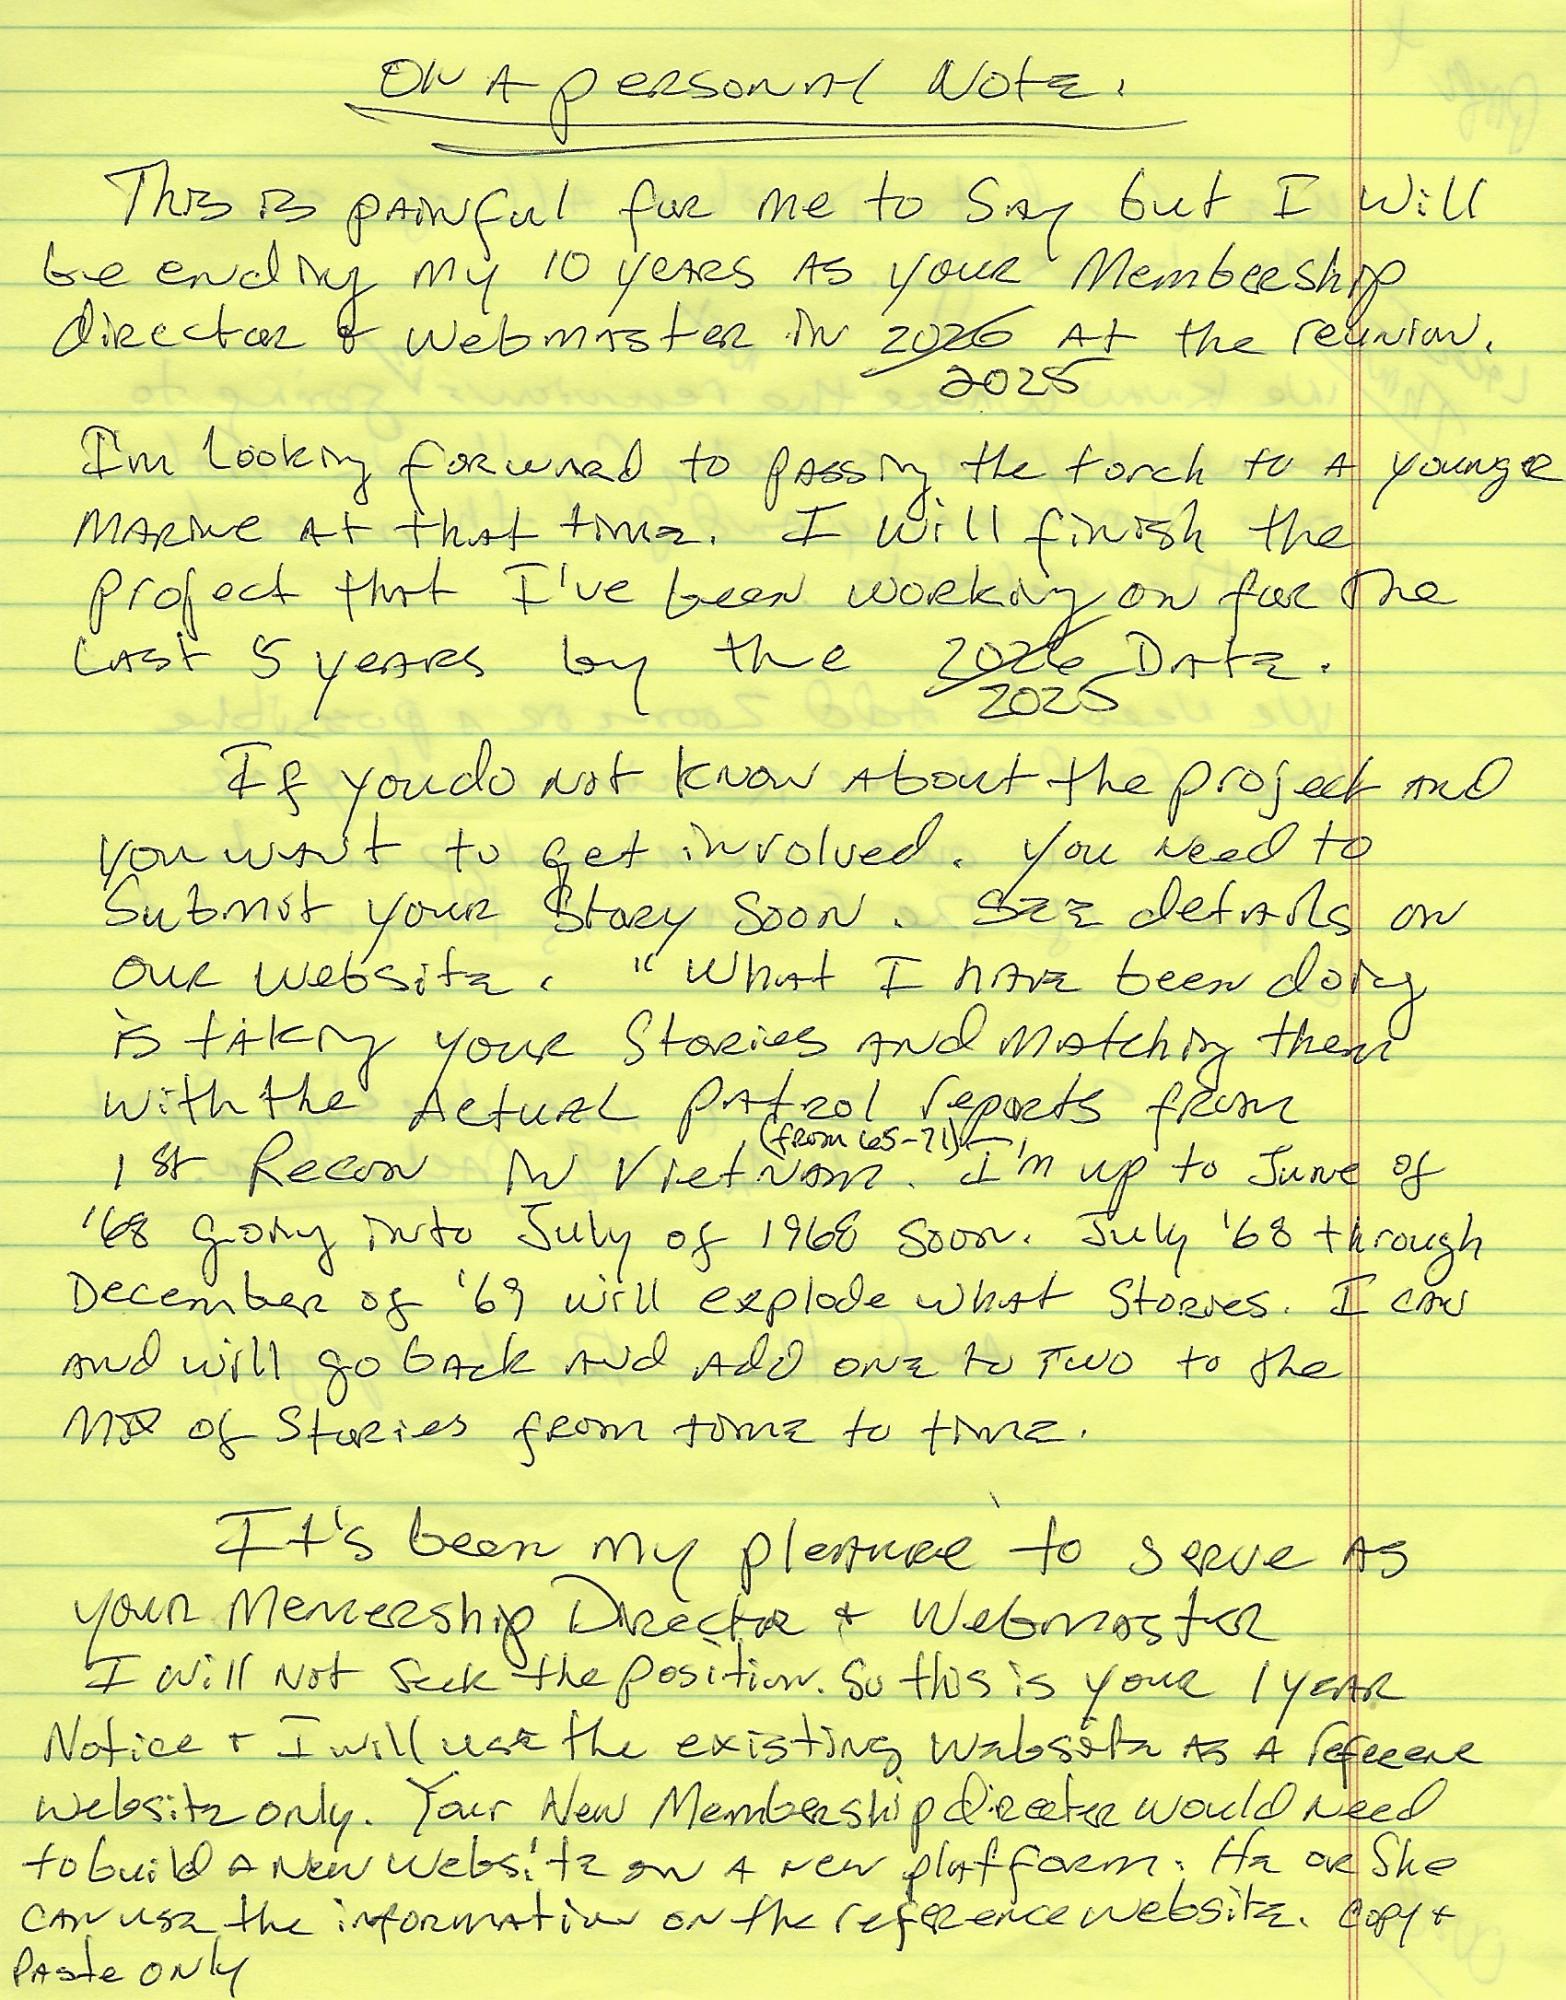 On A personal Note.
This is painful for me to say but I will
be ending my 10 years as your Membership
director & Webmaster in 2026 at the reunion.
2025
I'm looking forward to passing the torch to a younger
Marine at that time. I will finish the
project that I've been working on for the
last 5 years by the 2026 Date.
2025
If you do not know about the project and
you want to get involved. You need to
submit your story soon. See details on
our website. "What I have been doing
is taking your stories and matching them
with the actual patrol reports from
(from 65-71)
1st Recon in Vietnam. I'm up to June of
'68 going into July of 1968 soon. July '68 through
December of '69 will explode what stories. I can
and will go back and add one to two to the
mix of stories from time to time.
It's been my pleasure to serve as
your Memership Director & Webmaster
I will not seek the position. So this is your 1 year
Notice & I will use the existing website as a referene
website only. Your New Membership director would need
to build a new website on a new platform. He or She
can use the information on the reference website. Copy &
Paste only